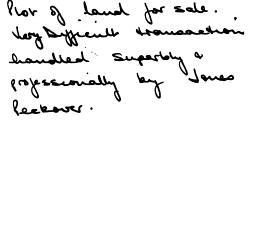 Plot of land for sale.
Very Difficult transaction
handled superbly &
professionally by Jones
Peckover.